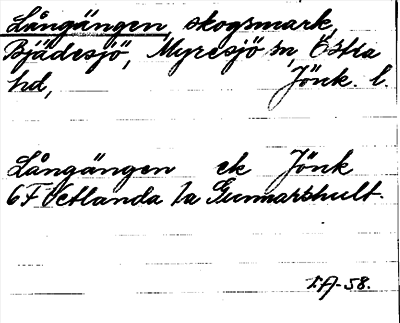 Långängen, skogsmark,
Bjädesjö, Myresjö sn, Östra
hd, Jönk. l.
Långängen ek Jönk
6F Vetlanda 1a Gunnarshult.
I.A-58.